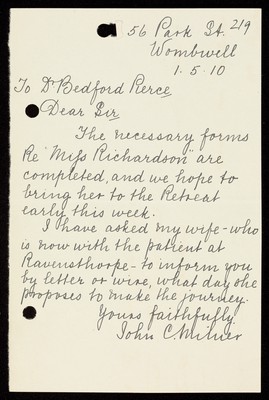 219
56 Park St.
Wombwell
1.5.10
To Dr Bedford Pierce
Dear Sir
The necessary forms
Re "Miss Richardson" are
completed, and we hope to
bring her to the Retreat
early this week.
I have asked my wife - who
is now with the patient at
Ravensthorpe - to inform you
by letter or wire, what day she
proposes to make the journey.
Yours faithfully
John C. Milner